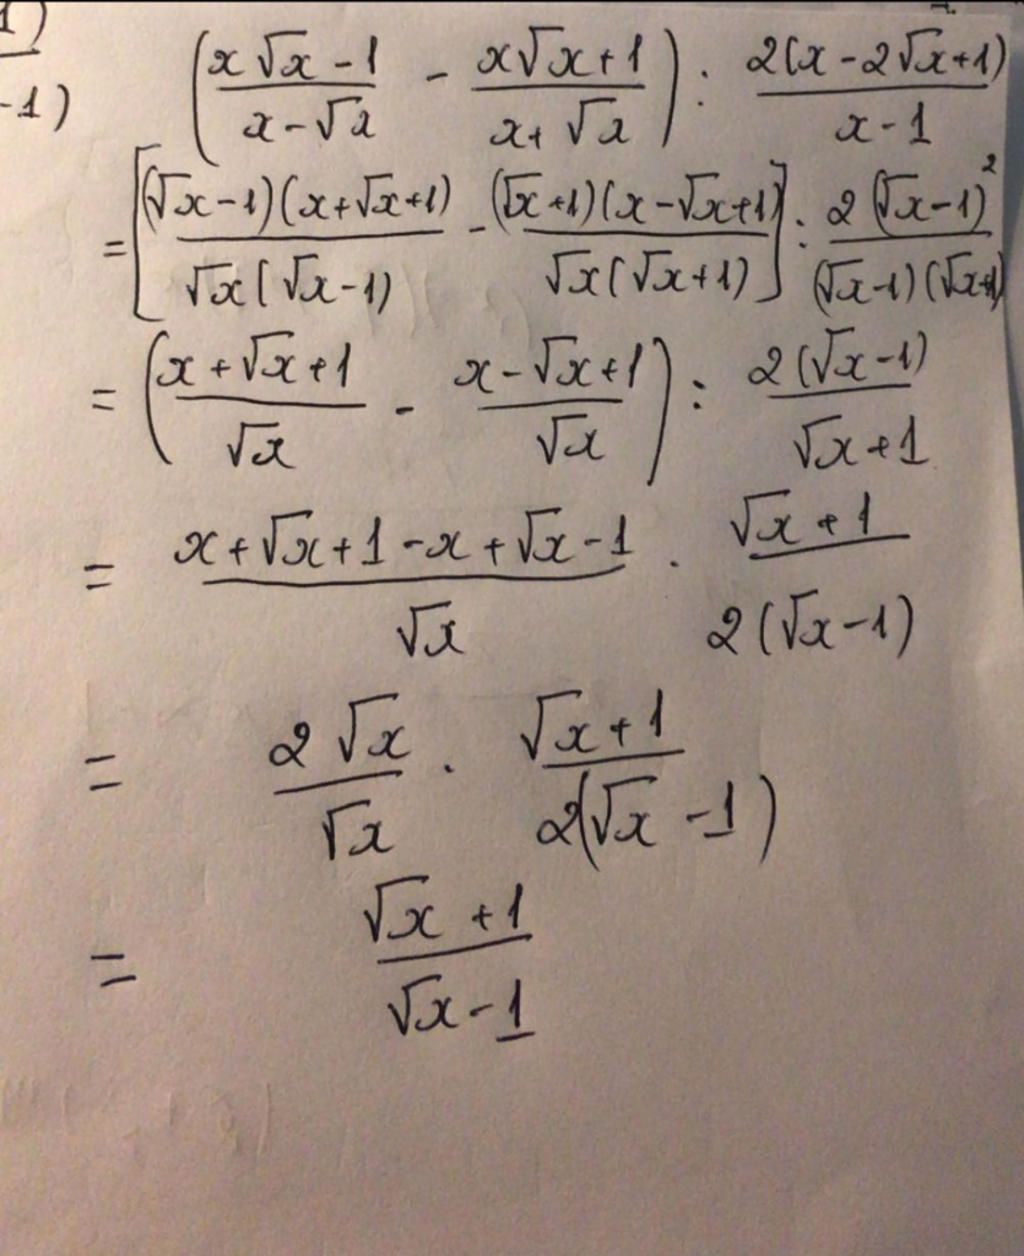 1)
-1)
(x√x - 1 / x - √x - x√x + 1 / x + √x) : 2(x - 2√x + 1) / x - 1
= [(√x - 1)(x + √x + 1) / √x(√x - 1) - (√x + 1)(x - √x + 1) / √x(√x + 1)] : 2(√x - 1)² / (√x - 1)(√x + 1)
= (x + √x + 1 / √x - x - √x + 1 / √x) : 2(√x - 1) / √x + 1
= x + √x + 1 - x + √x - 1 / √x . √x + 1 / 2(√x - 1)
= 2√x / √x . √x + 1 / 2(√x - 1)
= √x + 1 / √x - 1